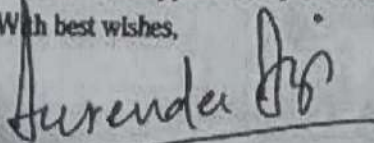 With best wishes,
Surender